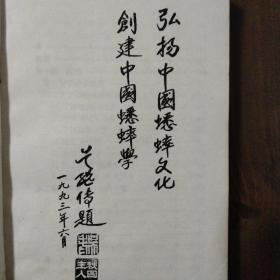 弘扬中國蟋蟀文化
創建中國蟋蟀學
題
一九九三年六月